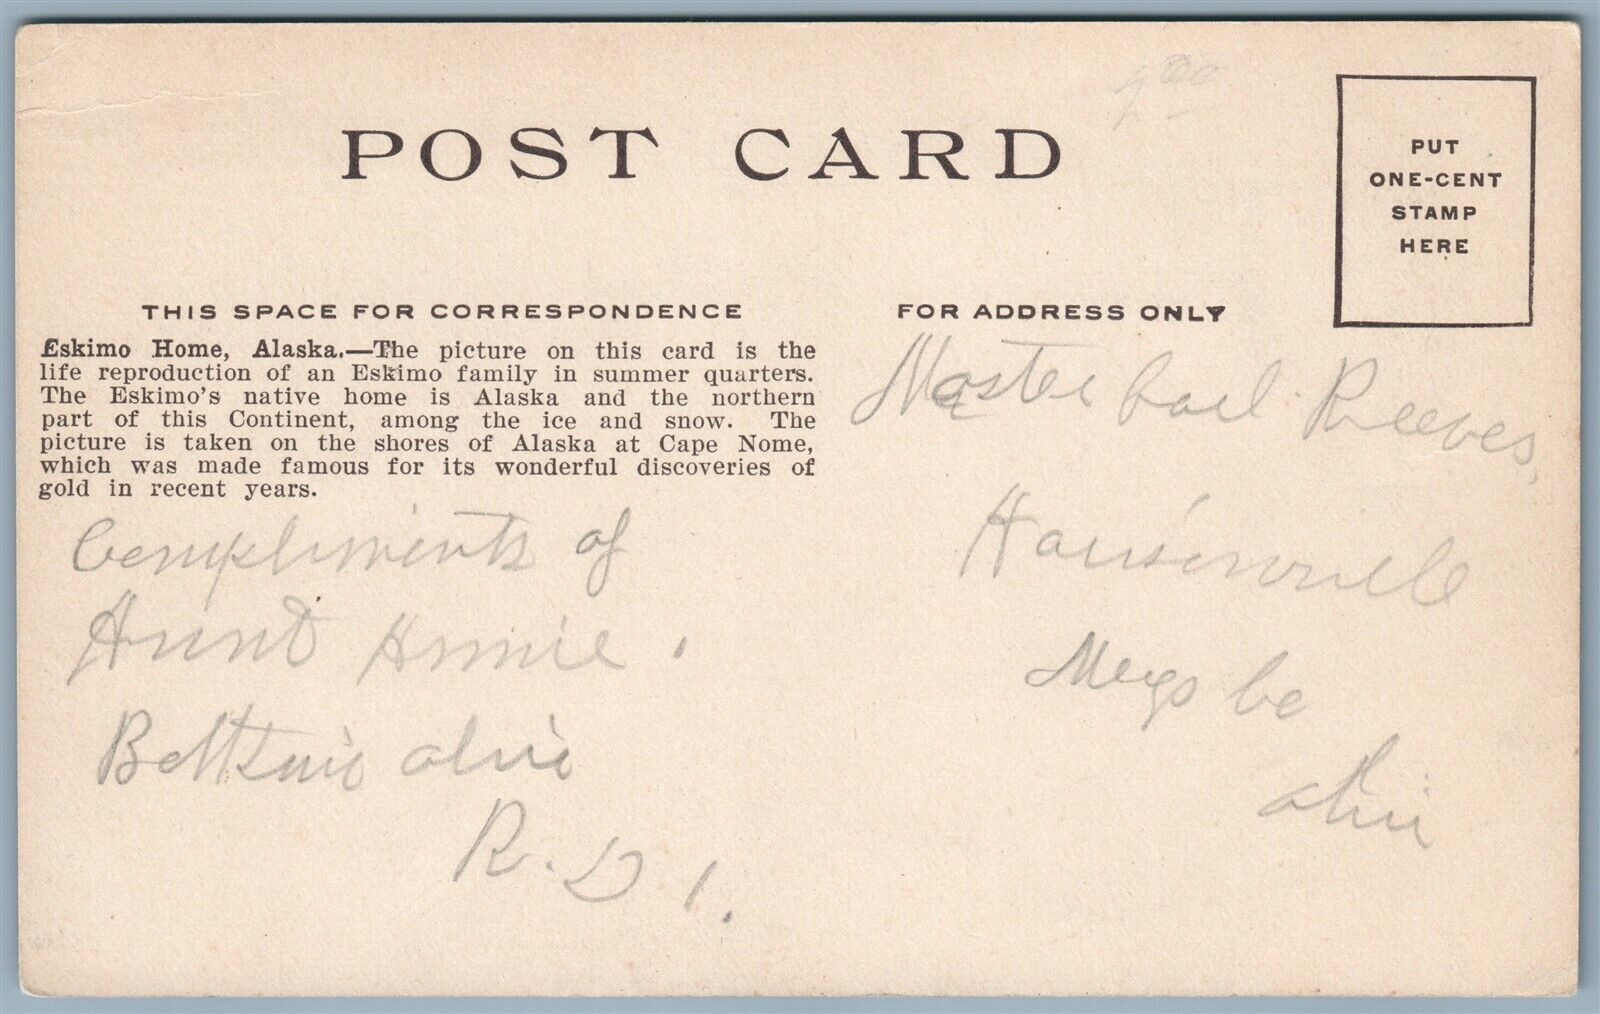 4.00
POST CARD
PUT
ONE-CENT
STAMP
HERE
THIS SPACE FOR CORRESPONDENCE
Eskimo Home, Alaska.—The picture on this card is the
life reproduction of an Eskimo family in summer quarters.
The Eskimo's native home is Alaska and the northern
part of this Continent, among the ice and snow. The
picture is taken on the shores of Alaska at Cape Nome,
which was made famous for its wonderful discoveries of
gold in recent years.
Compliments of
Aunt Annie.
ohio
R. D 1.
FOR ADDRESS ONLY
Master Earl Reeves,
Meigs Co
ohio